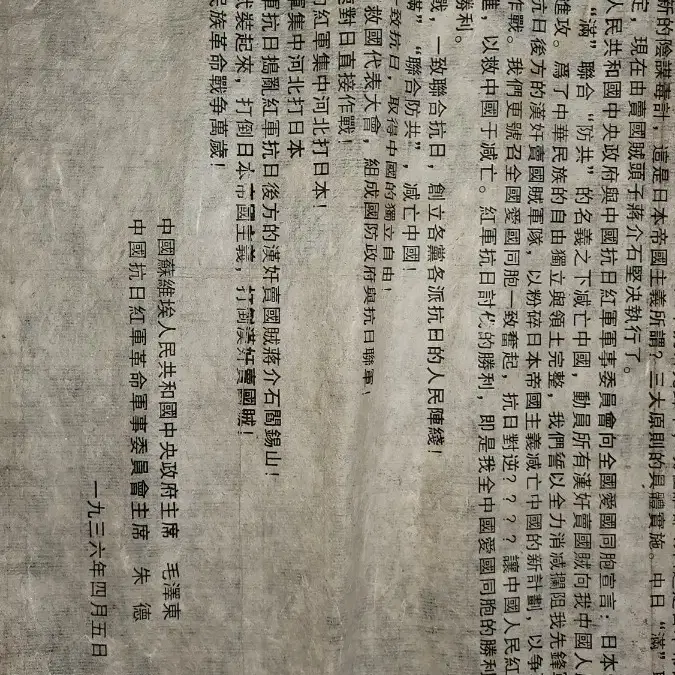 新的陰謀毒計，這是日本帝國主義所謂？三大原則的具體實施。中日“滿”
定，現在由賣國賊頭子蔣介石堅决執行了。
人民共和國中央政府與中國抗日紅軍軍事委員會向全國愛國同胞宣言：日本
“滿”聯合“防共”的名義之下减亡中國，動員所有漢奸賣國賊向我中國人
進攻。爲了中華民族的自由獨立與領土完整，我們誓以全力消减攔阻我先鋒
抗日後方的漢奸賣國賊軍隊，以粉碎日本帝國主義减亡中國的新計劃，以争
作戰。我們更號召全國愛國同胞一致奮起，抗日對逆？？？？讓中國人民紅
進，以救中國于减亡。紅軍抗日討伐的勝利，即是我全中國愛國同胞的勝利
勝利。
戰，一致聯合抗日，創立各黨各派抗日的人民陣綫！
滿”“聯合防共”，减亡中國！
一致抗日，取得中國的獨立自由！
救國代表大會，組成國防政府與抗日聯軍！
對日直接作戰！
紅軍集中河北打日本！
軍集中河北打日本
軍抗日搗亂紅軍抗日後方的漢奸賣國賊蔣介石閻錫山！
武裝起來，打倒日本帝國主義，打倒漢奸賣國賊！
民族革命戰争萬歲！
中國蘇維埃人民共和國中央政府主席 毛澤東
中國抗日紅軍革命軍事委員會主席 朱 德
一九三六年四月五日